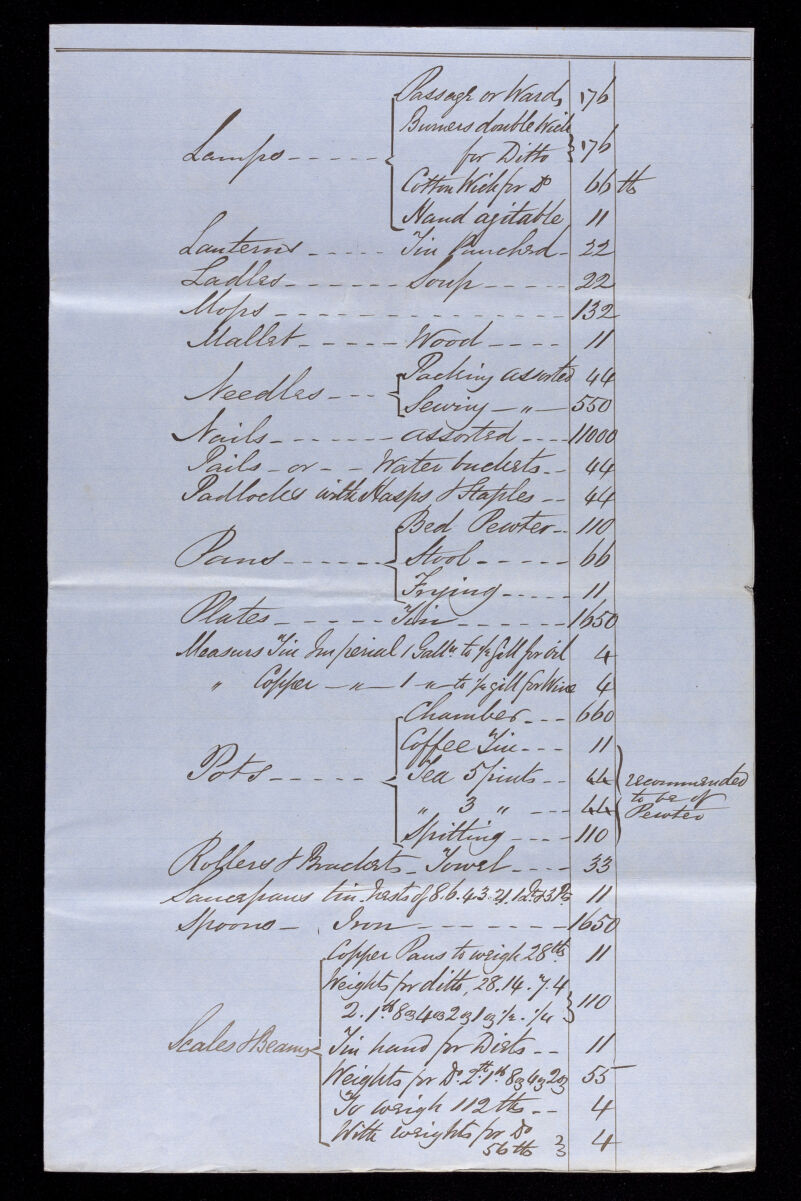 Passage or Wards 176
Burners double Wick
Lamps - - - - - for Ditto } 176
Cotton Wick for Do 66 lbs
Hand agitable 11
Lanterns - - - - - Tin Punched - 22
Ladles - - - - - - Soup - - - - - 22
Mops - - - - - - - - - - - - - - 132
Mallet - - - - - Wood - - - - 11
Packing assorted 44
Needles - - -
Sewing - " - 550
Nails - - - - - - - assorted - - - - 11000
Pails - or - - Water buckets - - 44
Padlocks with Hasps & Staples - - 44
Bed Pewter - - 110
Pans - - - - - - Stool - - - - - 66
Frying - - - - - 11
Plates - - - - - Tin - - - - - - - 1650
Measures Tin Imperial 1 Galln to ½ gill for Oil 4
" Copper - " - 1 - " - to ½ gill for Wine 4
Chamber - - - 660
Coffee Tin - - - 11
Pots - - - - - Tea 5 pints - - 44 recommended
to be of
" 3 " - - - 44 Pewter
Spitting - - - - 110
Rollers & Brackets - Towel - - - - 33
Saucepans tin Nests of 8. 6. 4. 3. 2. 1 Qts & 3 Pts 11
Spoons - Iron - - - - - - - 1650
Copper Pans to weigh 28 lbs 11
Weights for ditto, 28. 14. 7. 4
2. 1 lb 8 oz 4 oz 2 oz 1 oz ½ - ¼ } 110
Scales & Beams Tin hand for Diets - - 11
Weights for Do. 2 lb 1 lb 8 oz 4 oz 2 oz 55
To weigh 112 lbs - - 4
With weights for Do
56 lbs } 4